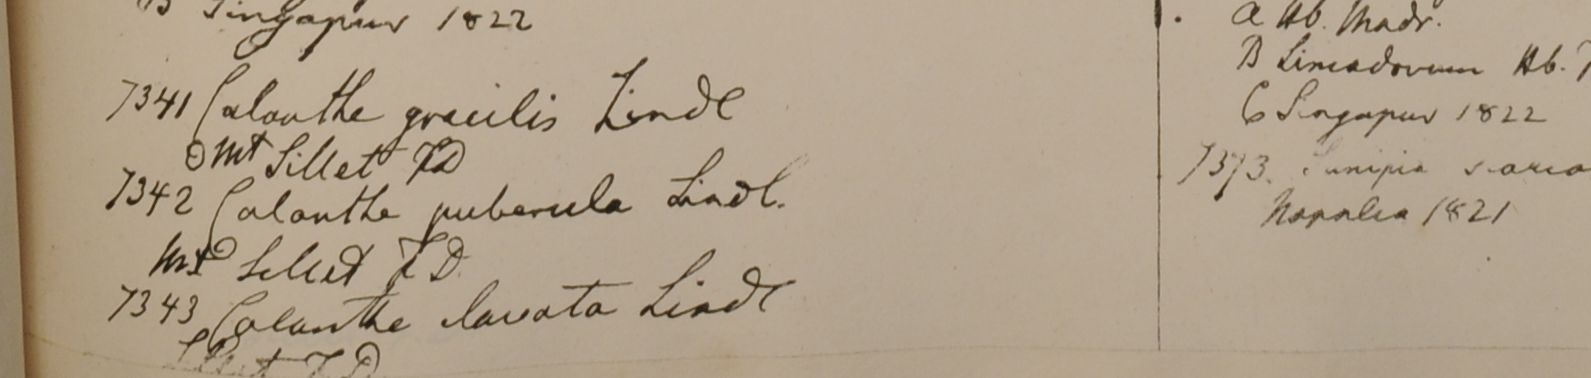 B Singapur 1822
7341 Calanthe gracilis Lindl
Mt Sillet FD
7342 Calanthe puberula Lindl.
Mt Sillet F D
7343 Calanthe clavata Lindl
Sillet F D
a Hb. Madr.
B Limodorum Hb.
C Singapur 1822
7373. Sunipia
Napalia 1821